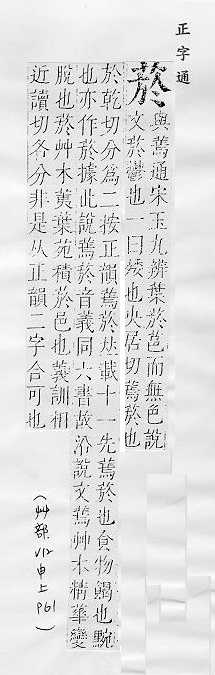 正字通
菸
與蔫通宋玉九辨葉菸芭而無色說
文菸鬱也一曰也央居切蔫菸也
於乾切分為二按正韻蔫菸𠀤載十一先蔫菸也食物餲也黦
也亦作菸據此說蔫菸音義同六書故沿說文蔫艸木精華變
脫也菸艸木黃葉苑積菸邑也義訓相
近讀切各分非是从正韻二字合可也
(艸部 V12 申上 P61)